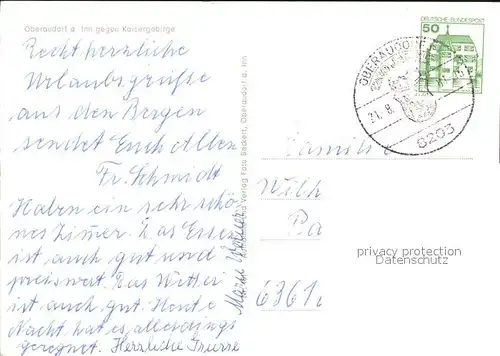 Oberaudorf a. Inn gegen Kaisergebirge
Recht herzliche
Urlaubsgrüße
aus den Bergen
sendet Euch allen
Fr. Schmidt
Haben ein sehr schö-
nes Zimmer. Das Essen
ist auch gut und
preiswert. Das Wetter
ist auch gut. Heute
Nacht hat es allerdings
geregnet. Herzliche Grüsse
Verlag Foto Beckert, Oberaudorf a. Inn
DEUTSCHE BUNDESPOST
50
OBERAUDORF
21. 8.
8203
Familie
Wilh
6361
privacy protection
Datenschutz